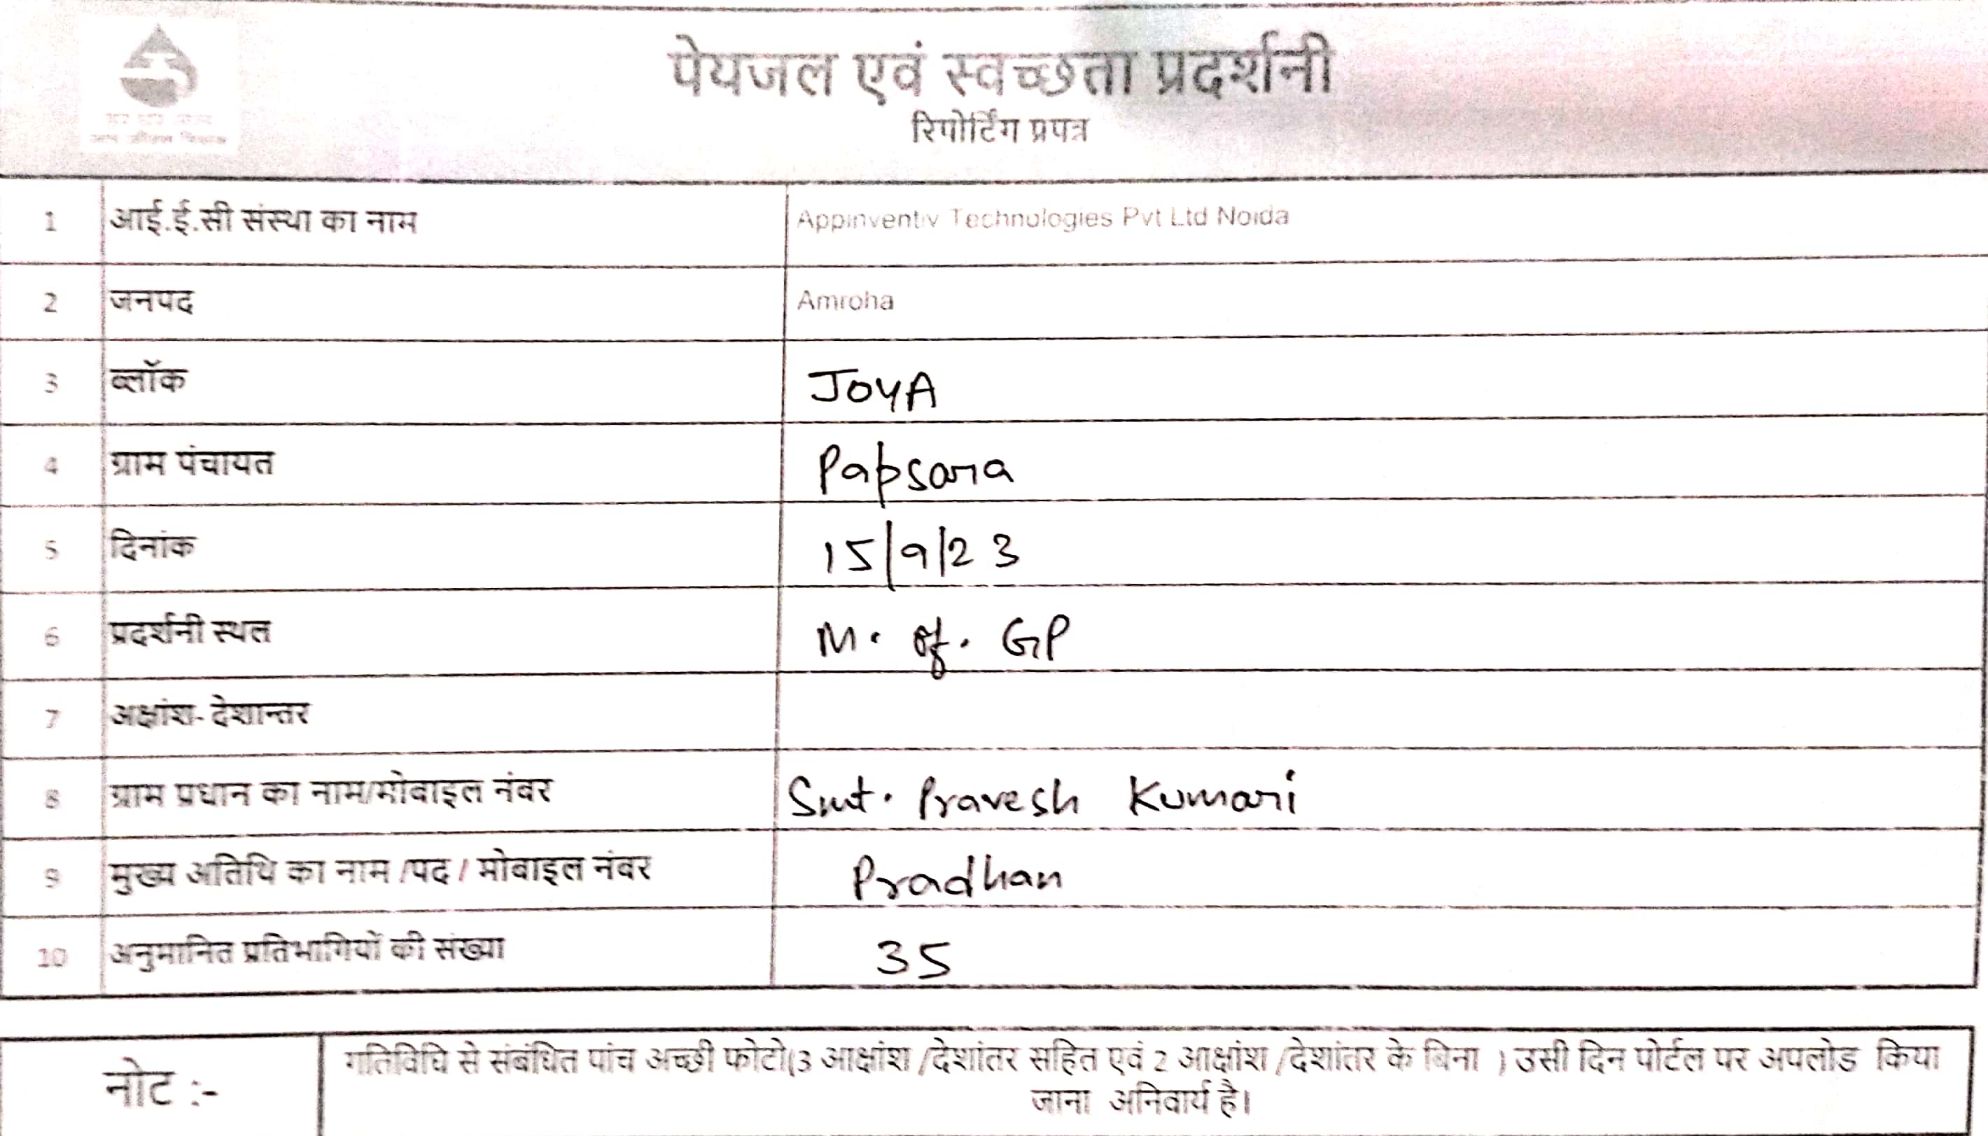 पेयजल एवं स्वच्छता प्रदर्शनी
रिपोर्टिंग प्रपत्र
1 आई.ई.सी संस्था का नाम Appinventiv Technologies Pvt Ltd Noida
2 जनपद Amroha
3 ब्लॉक JOYA
4 ग्राम पंचायत Papsara
5 दिनांक 15/9/23
6 प्रदर्शनी स्थल M. of. GP
7 अक्षांश- देशान्तर
8 ग्राम प्रधान का नाम/मोबाइल नंबर Smt. Pravesh Kumari
9 मुख्य अतिथि का नाम /पद / मोबाइल नंबर Pradhan
10 अनुमानित प्रतिभागियों की संख्या 35
नोट :- गतिविधि से संबंधित पांच अच्छी फोटो(3 आक्षांश /देशांतर सहित एवं 2 आक्षांश /देशांतर के बिना ) उसी दिन पोर्टल पर अपलोड किया
जाना अनिवार्य है।